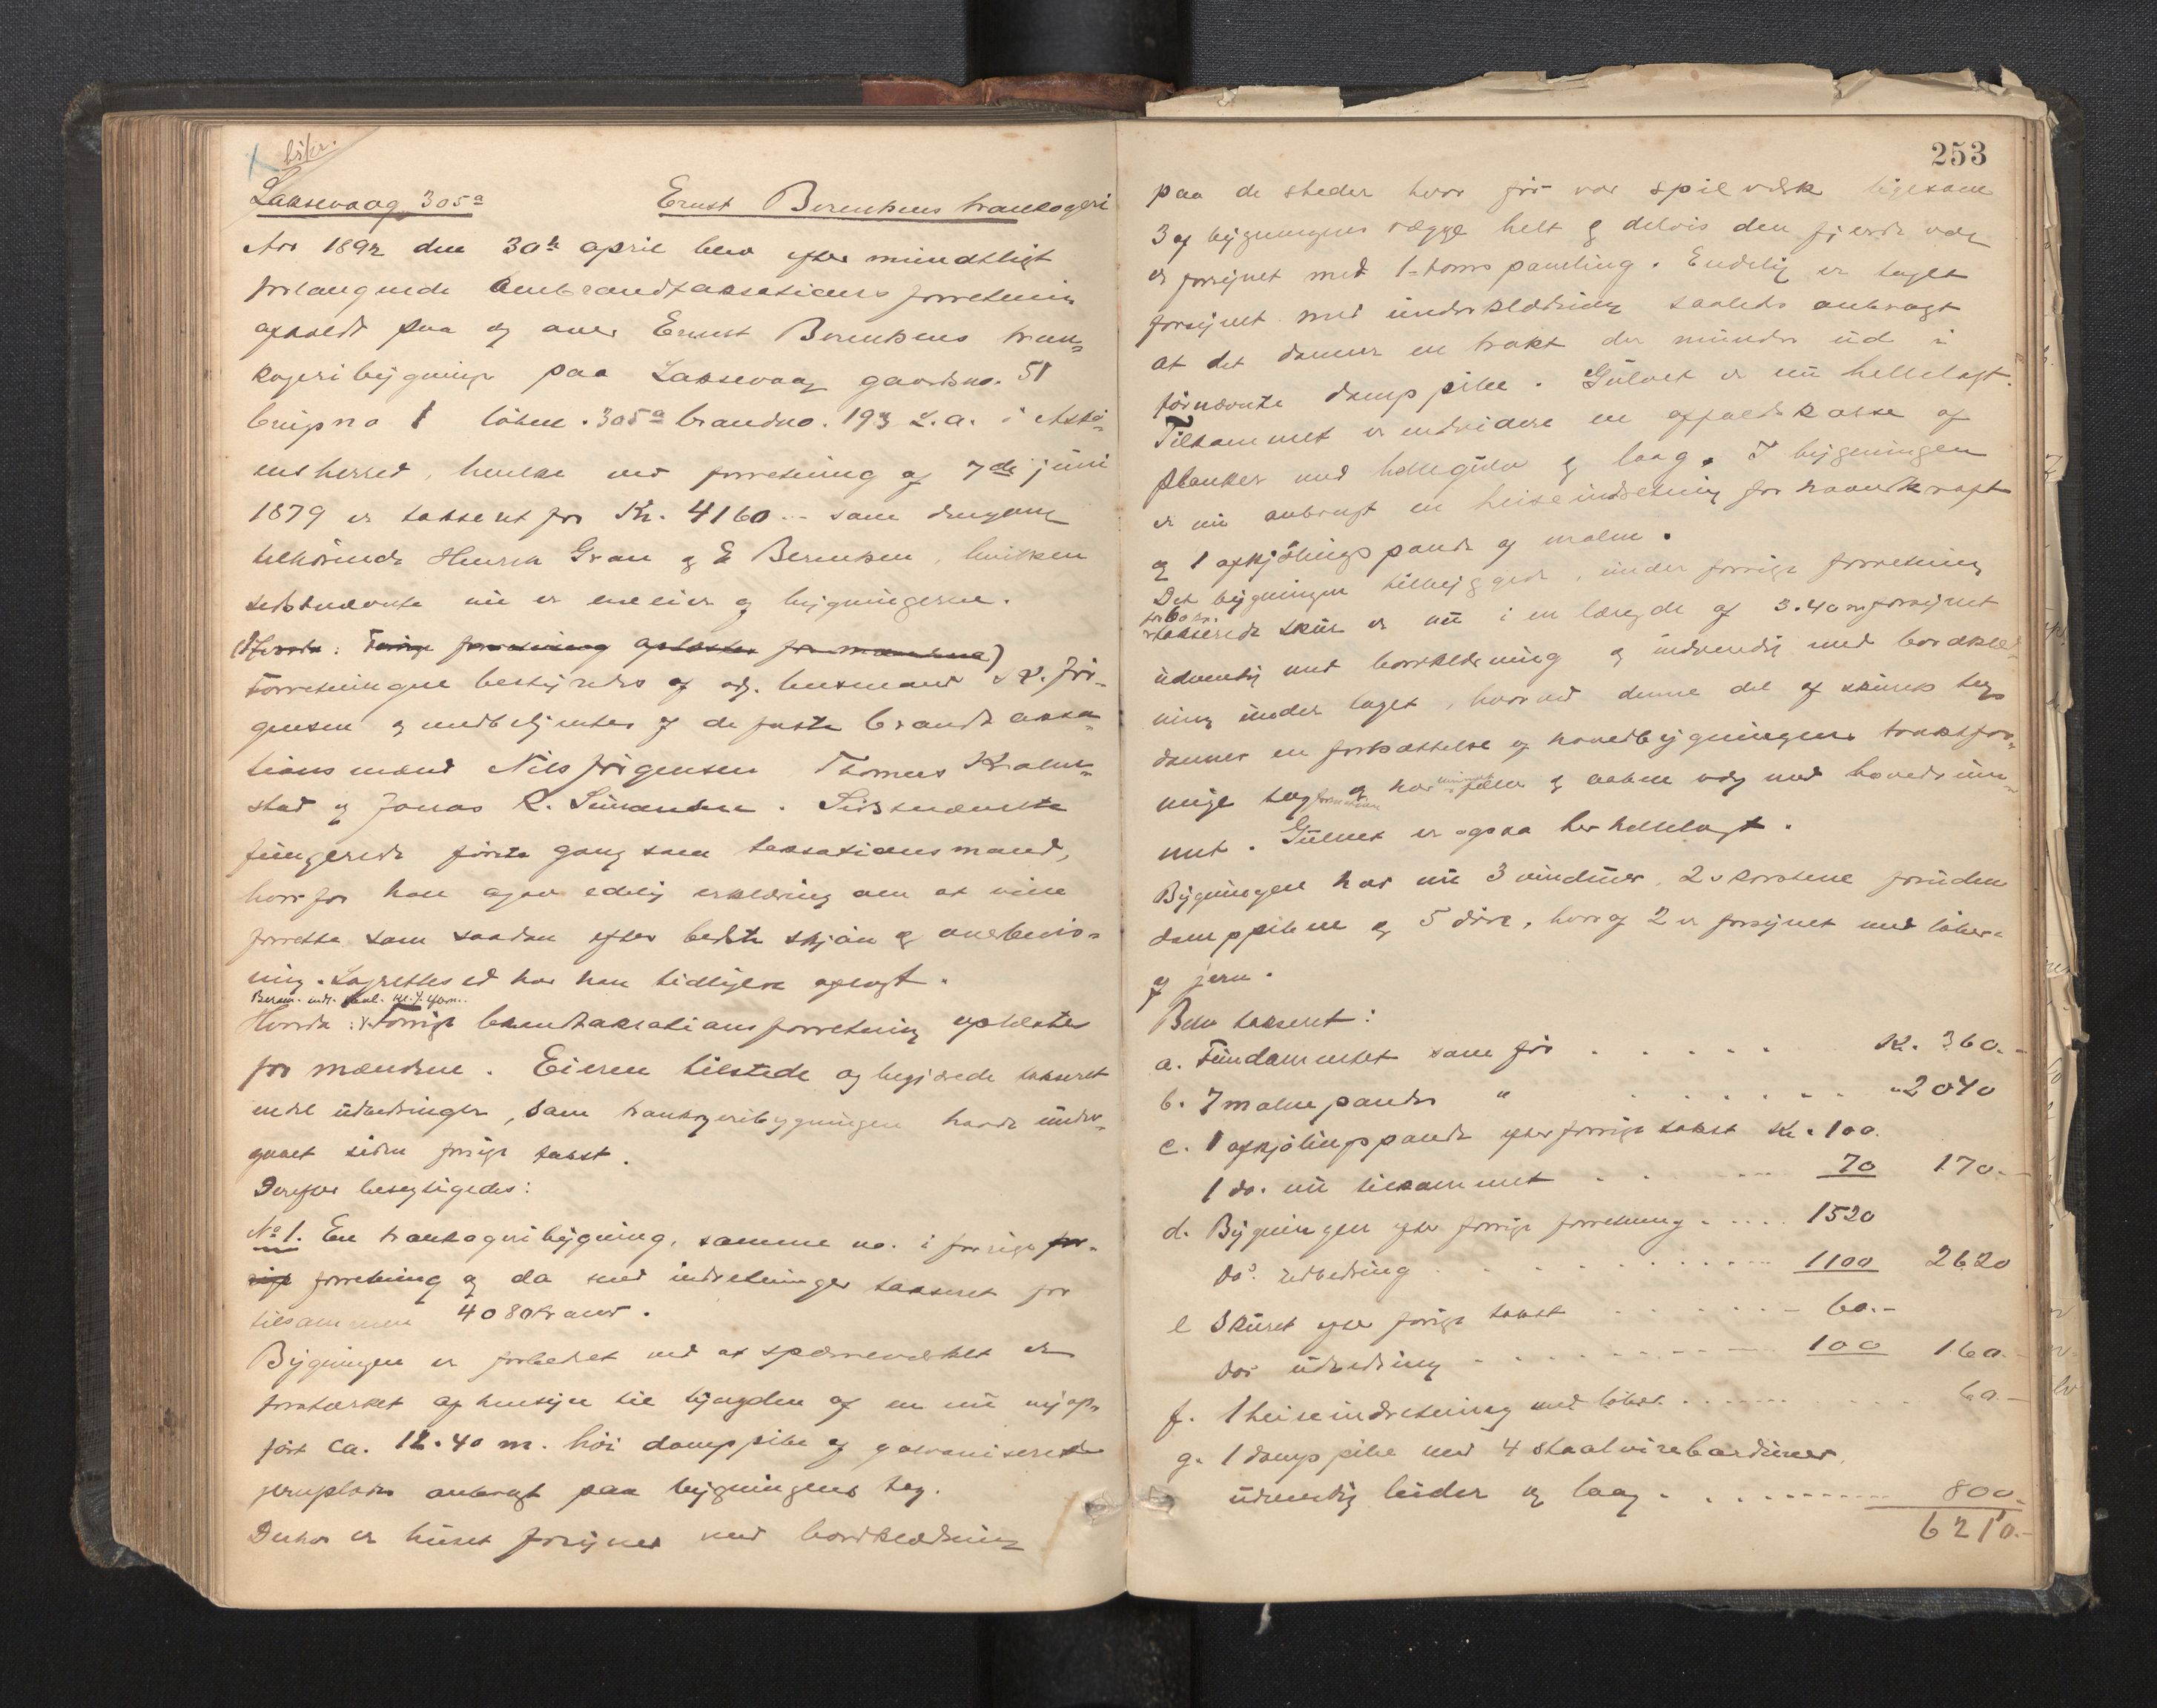 bskr.
Laksevaag 305a Ernst Berentsens trankogeri
Aar 1892 den 30te april blev efter mundtligt
forlangende ombrandtaksationsforretning
afholdt paa og over Ernst Berentsens tran-
kogeribygning paa Laksevaag gaardsno. 51
brugsno 1 löbene. 305a brandno. 193 L.a. i Askö-
ens herred, hvilke ved forretning af 7de juni
1879 er taksert for Kr. 4160.- som dengang
tilhörende Henrik Gran og E Berentsen, hvilken
sidstnævnte nu er eneeier af bygningerne.
(Hvorda: Forrige forretning oplæstes for mændene)
Forretningen bestyredes af adj. lensmand Jör-
gensen og medbetjentes af de faste brandtaksa-
tionsmænd Nils Jörgensen Thomas
stad og Jonas R. Simonsen. Sidstnævnte
fungerede förste gang som taksationsmand,
hvorfor han afgav edelig erklæring om at ville
forrette som saadan efter bedste skjön og overbevis-
ning. Lagrettesed har han tidligere aflagt.
Hvorda: Forrige brandtaksationsforretning oplæstes
for mændene. Eieren tilstede og begjærede taksert
endel udbedringer, som trankogeribygningen havde under-
gaaet siden forrige takst.
Derefter besigtigedes:
No 1. En trankogeribygning, samme no. i forrige for-
rige forretning og da med indretninger taksert for
tilsammen 4080 kroner.
Bygningen er forbedret ved at spærreverket er
forstærket af hensyn til tyngden af en nu nyop-
fört ca. 12.40 m. höi damppibe af galvaniserede
jernplader anbragt paa bygningens tag.
Derhos er huset forsynet med bordklædning
253
paa de steder hvor för var spilverk ligesom
3 af bygningens vægge helt og delvis den fjerde væg
er forsynet med 1-toms paneling. Endelig er taget
forsynet med underklædning saaledes anbragt
at det danner en trakt der munder ud i
förnævnte damppibe. Gulvet er nu hellelagt.
Tilkommet er endvidere en affaldskasse af
planker med hellegulv og laag. I bygningen
er nu anbragt en heiseindretning for haandkraft
og 1 afkjölingspande af malm.
Det bygningen tilbyggede, under forrige forretning
for 60 kr.
takserede skur er nu i en længde af 3.40 m forsynet
udvendig med bordklædning og indvendig med bordklæd-
ning under taget, hvorved denne del af skurets tag
danner en fortsættelse af hovedbygningens traktfor-
mige tag og har og aaben væg mod hovedrum-
met. Gulvet er ogsaa her hellelagt.
Bygningen har nu 3 vinduer, 2 skorstene foruden
damppiben og 5 döre, hvoraf 2 er forsynet med löbere
af jern.
Blev taksert:
a. Fundamentet som för . . . . . K. 360.-
b. 7 malmpander " . . . . . . " 2040
c. 1 afkjölingspande efter forrige takst Kr. 100.
1 do. nu tilkommet . . . . 70 170.-
d. Bygningen efter forrige forretning . . . . 1520
do. udbedring . . . . . . . 1100 2620
e Skuret efter forrige takst . . . . . 60.-
do. udbedring . . . . . . . 100 160.-
f. 1 heiseindretning med tilbeh. . . . . . . 60.-
g. 1 damppibe med 4 staalvirebarduner,
udvendig leider og laag . . . . . . . 800.-
6210.-